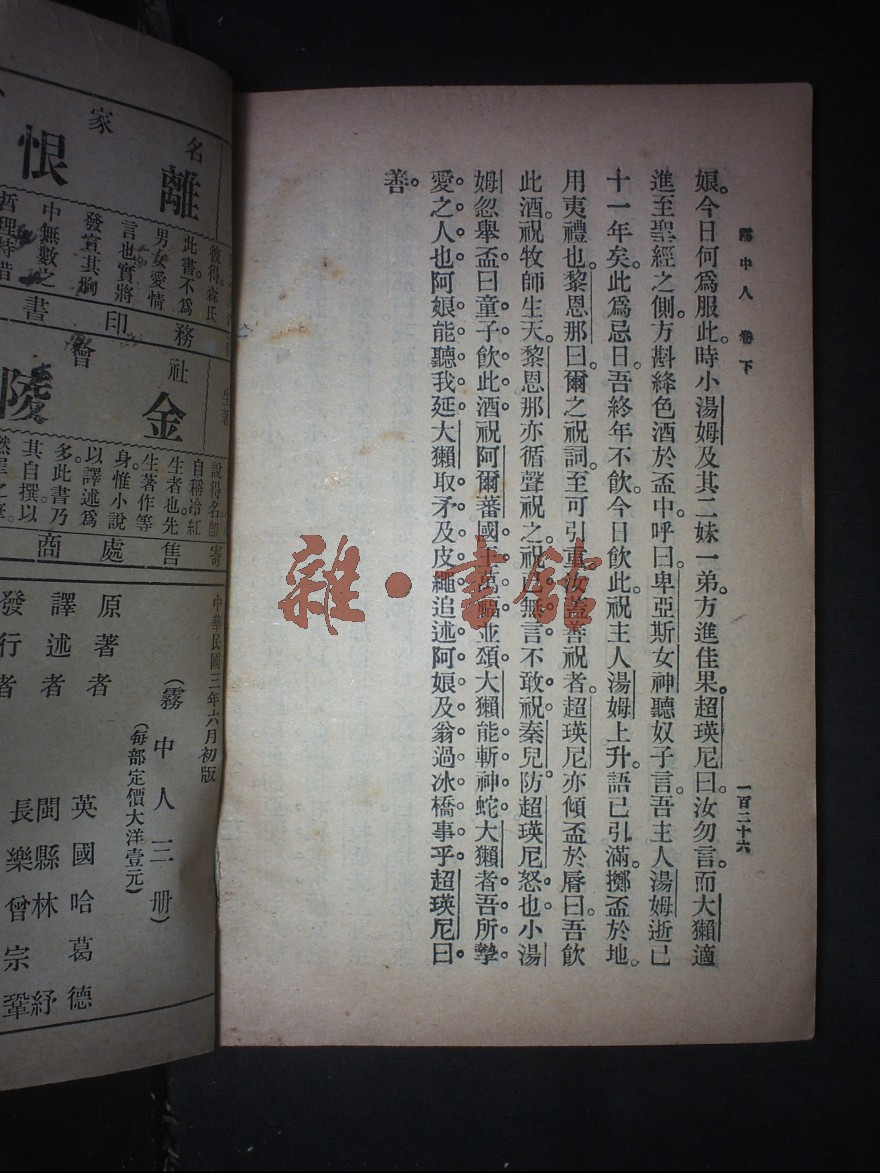 霧中人 卷下
一百二十六
娘。今日何爲服此。時小湯姆及其二妹一弟。方進佳果。超瑛尼曰。汝勿言。而大獺適
進至聖經之側。方斟絳色酒於盃中。呼曰。卑亞斯女神聽奴子言。吾主人湯姆逝已
十一年矣。此爲忌日。吾終年不飲。今日飲此。祝主人湯姆上升。語已引滿。擲盃於地。
用夷禮也。黎恩那曰。爾之祝詞。至可引重。汝蓋善祝者。超瑛尼亦傾盃於唇曰。吾飲
此酒。祝牧師生天。黎恩那亦循聲祝之。祝已無言。不敢祝秦兒。防超瑛尼怒也。小湯
姆忽舉盃曰。童子飲此酒。祝阿爾蕃國王萬福。並頌大獺能斬神蛇。大獺者。吾所摯
愛之人也。阿娘能聽我延大獺取矛及皮繩。追述阿娘及翁過冰橋事乎。超瑛尼曰。
善。
名家
離恨
彼得森氏
此書不爲
男女愛情
言也實將
發宣其胸
中無數之
哲理特借
務印書
社會
金陵
說得名郎
自稱冷紅
生者也。先
生著作等
身惟小說
以譯述爲
多。此書乃
其自撰。以
寄售處商
中華民國三年六月初版
(霧中人三册)
(每部定價大洋壹元)
原著者 英國哈葛德
譯述者 閩縣林紓
長樂曾宗鞏
發行者
雜·書館